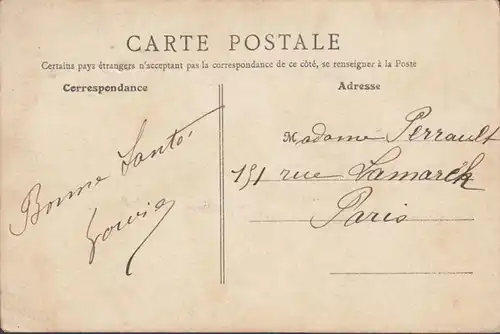 CARTE POSTALE
Certains pays étrangers n'acceptant pas la correspondance de ce côté, se renseigner à la Poste
Correspondance
Bonne Santé.
Adresse
Madame Perrault
151 rue Lamarck
Paris